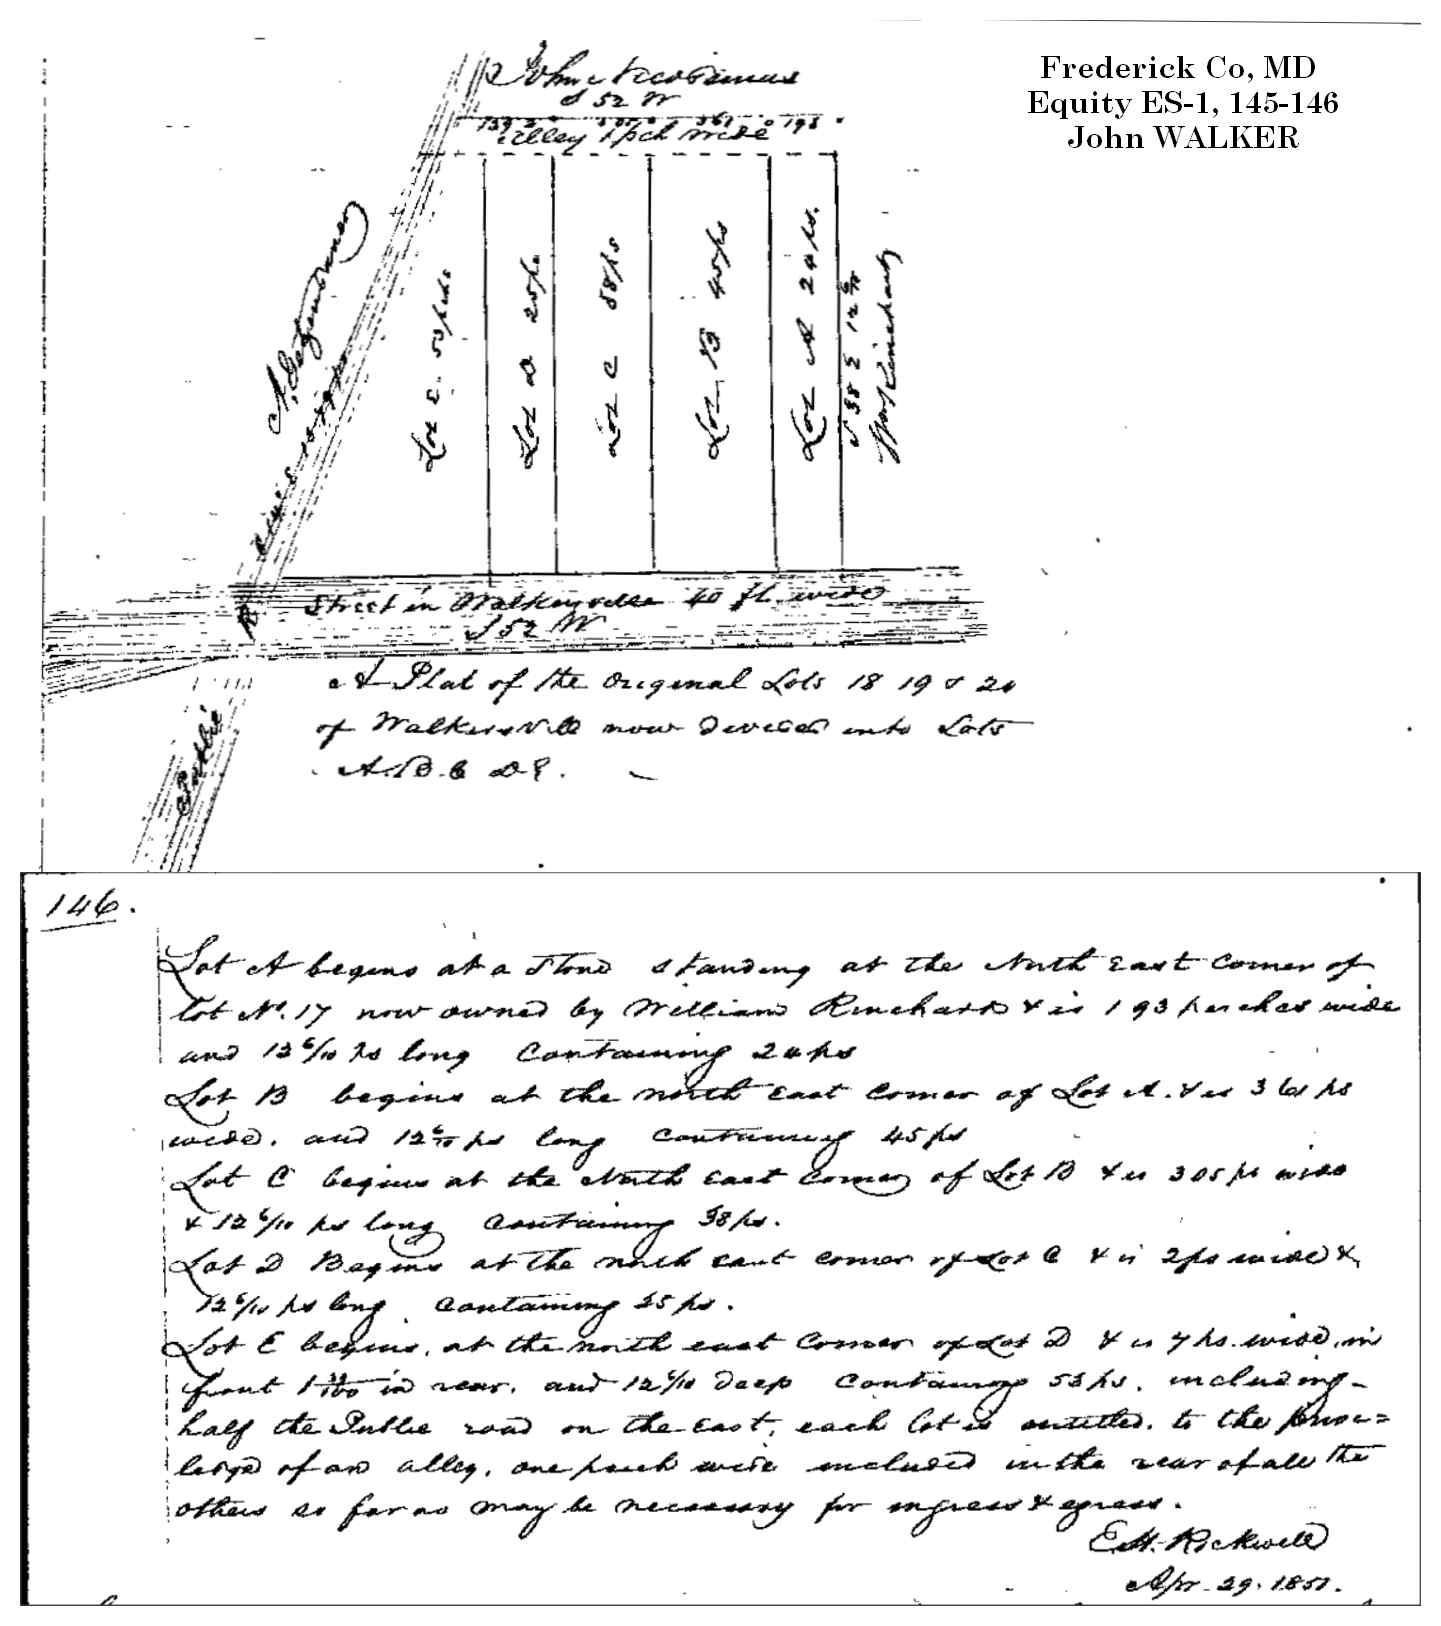 Frederick Co, MD
Equity ES-1, 145-146
John WALKER
John
S 52 W
139 2 305 361 193
Alley 1 pch wide
Lot E. 53 pchs
Lot D 25 ps
Lot C 38 ps
Lot B 45 ps
Lot A 24 ps.
S 38 E 12 6/10
Wm Rinehart
Street in Walkersville 40 ft. wide
S 52 W
Public
A Plat of the Original Lots 18 19 & 20
of Walkersville now divided into Lots
A. B. C D E.
146.
Lot A begins at a Stone standing at the North East Corner of
lot No. 17 now owned by William Rinehart & is 1 93 perches wide
and 12 6/10 ps long Containing 24 ps
Lot B begins at the north east corner of Lot A. & is 3 61 ps
wide. and 12 6/10 ps long Containing 45 ps
Lot C begins at the North East Corner of Lot B & is 3 05 ps wide
& 12 6/10 ps long Containing 38 ps.
Lot D Begins at the north east corner of Lot C & is 2 ps wide &
12 6/10 ps long Containing 25 ps.
Lot E begins, at the north east Corner of Lot D & is 7 ps. wide, in
front 1 39/100 in rear. and 12 6/10 deep Containing 53 ps. including
half the Public road on the East, each lot is entitled. to the privi=
ledge of an alley, one perch wide included in the rear of all the
others so far as may be necessary for ingress & egress.
E. H. Rockwell
Apr. 29. 1851.